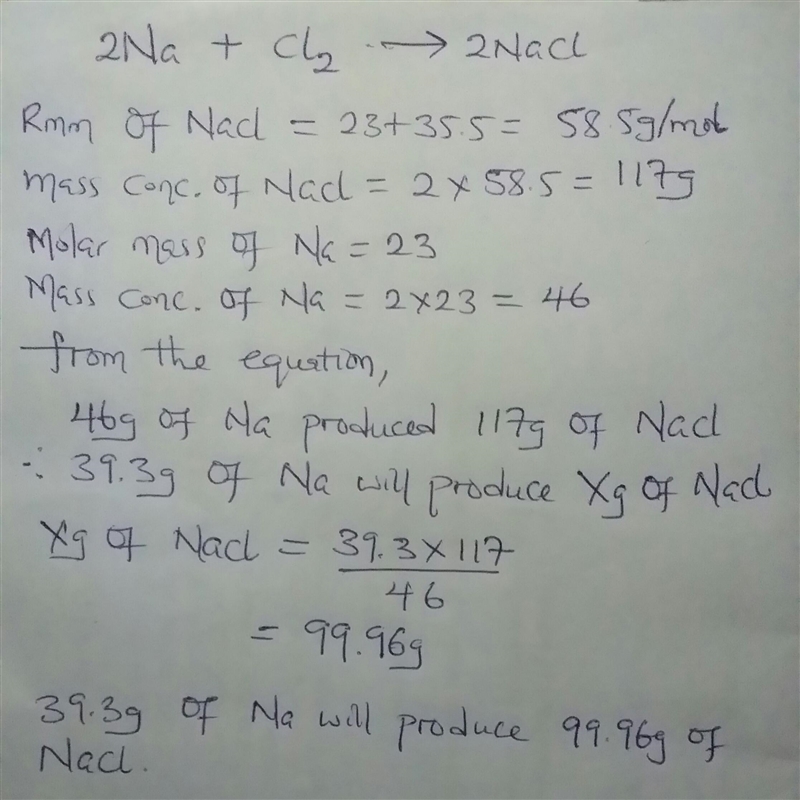 2Na + Cl₂ → 2NaCl
Rmm Of NaCl = 23+35.5 = 58.5g/mol
Mass Conc. of NaCl = 2 × 58.5 = 117g
Molar mass of Na = 23
Mass conc. of Na = 2×23 = 46
from the equation,
46g of Na produced 117g of NaCl
∴ 39.3g Of Na will produce Xg Of NaCl
Xg Of NaCl = 39.3 × 117
46
= 99.96g
39.3g Of Na will produce 99.96g of
NaCl.